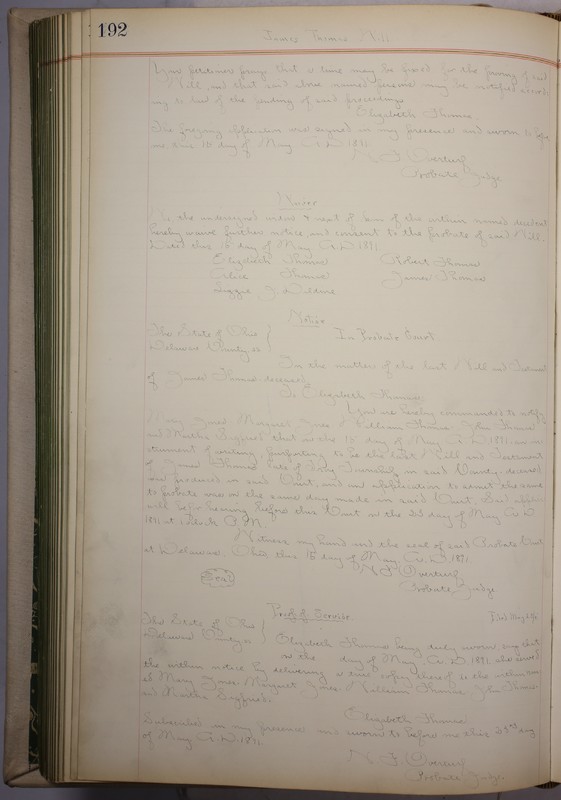 192
James Thomas Will
Your petitioner prays that a time may be fixed for the proving of said
Will, and that said above named persons may be notified accord-
ing to law of the pending of said proceedings
Elizabeth Thomas.
The foregoing application was signed in my presence and sworn to before
me, this 15 day of May A.D. 1891
N. F. Overturf
Probate Judge
Waiver
We, the undersigned widow & next of kin of the within named decedent
hereby waive further notice and consent to the probate of said Will.
Dated this 15 day of May A.D. 1891
Elizabeth Thomas Robert Thomas
Alice Thomas James Thomas
Notice
The State of Ohio
Delaware County, ss In Probate Court
In the matter of the last Will and Testament
of James Thomas deceased.
To Elizabeth Thomas
You are hereby commanded to notify
Mary Jones Margaret Jones William Thomas John Thomas
and Martha Sigfried, that on the 15 day of May A.D. 1891, an in-
strument of writing, purporting to be the last Will and Testament
of James Thomas late of Troy Township in said County, deceased
was produced in said Court, and an application to admit the same
to probate was on the same day made in said Court. Said applica-
will be for hearing before this Court on the 23d day of May A.D.
1891 at o'clock M.
Witness my hand and the seal of said Probate Court
at Delaware, Ohio, this 15 day of May A.D. 1891.
Seal
N. F. Overturf
Probate Judge
Proof of Service.
The State of Ohio
Delaware County, ss Elizabeth Thomas being duly sworn, says that
on the day of May A.D. 1891 she served
the within notice by delivering a true copy thereof to the within nam-
ed Mary Jones Margaret Jones, William Thomas, John Thomas
and Martha Sigfried.
Elizabeth Thomas
Subscribed in my presence and sworn to before me this 23rd day
of May A.D. 1891.
N. F. Overturf
Probate Judge